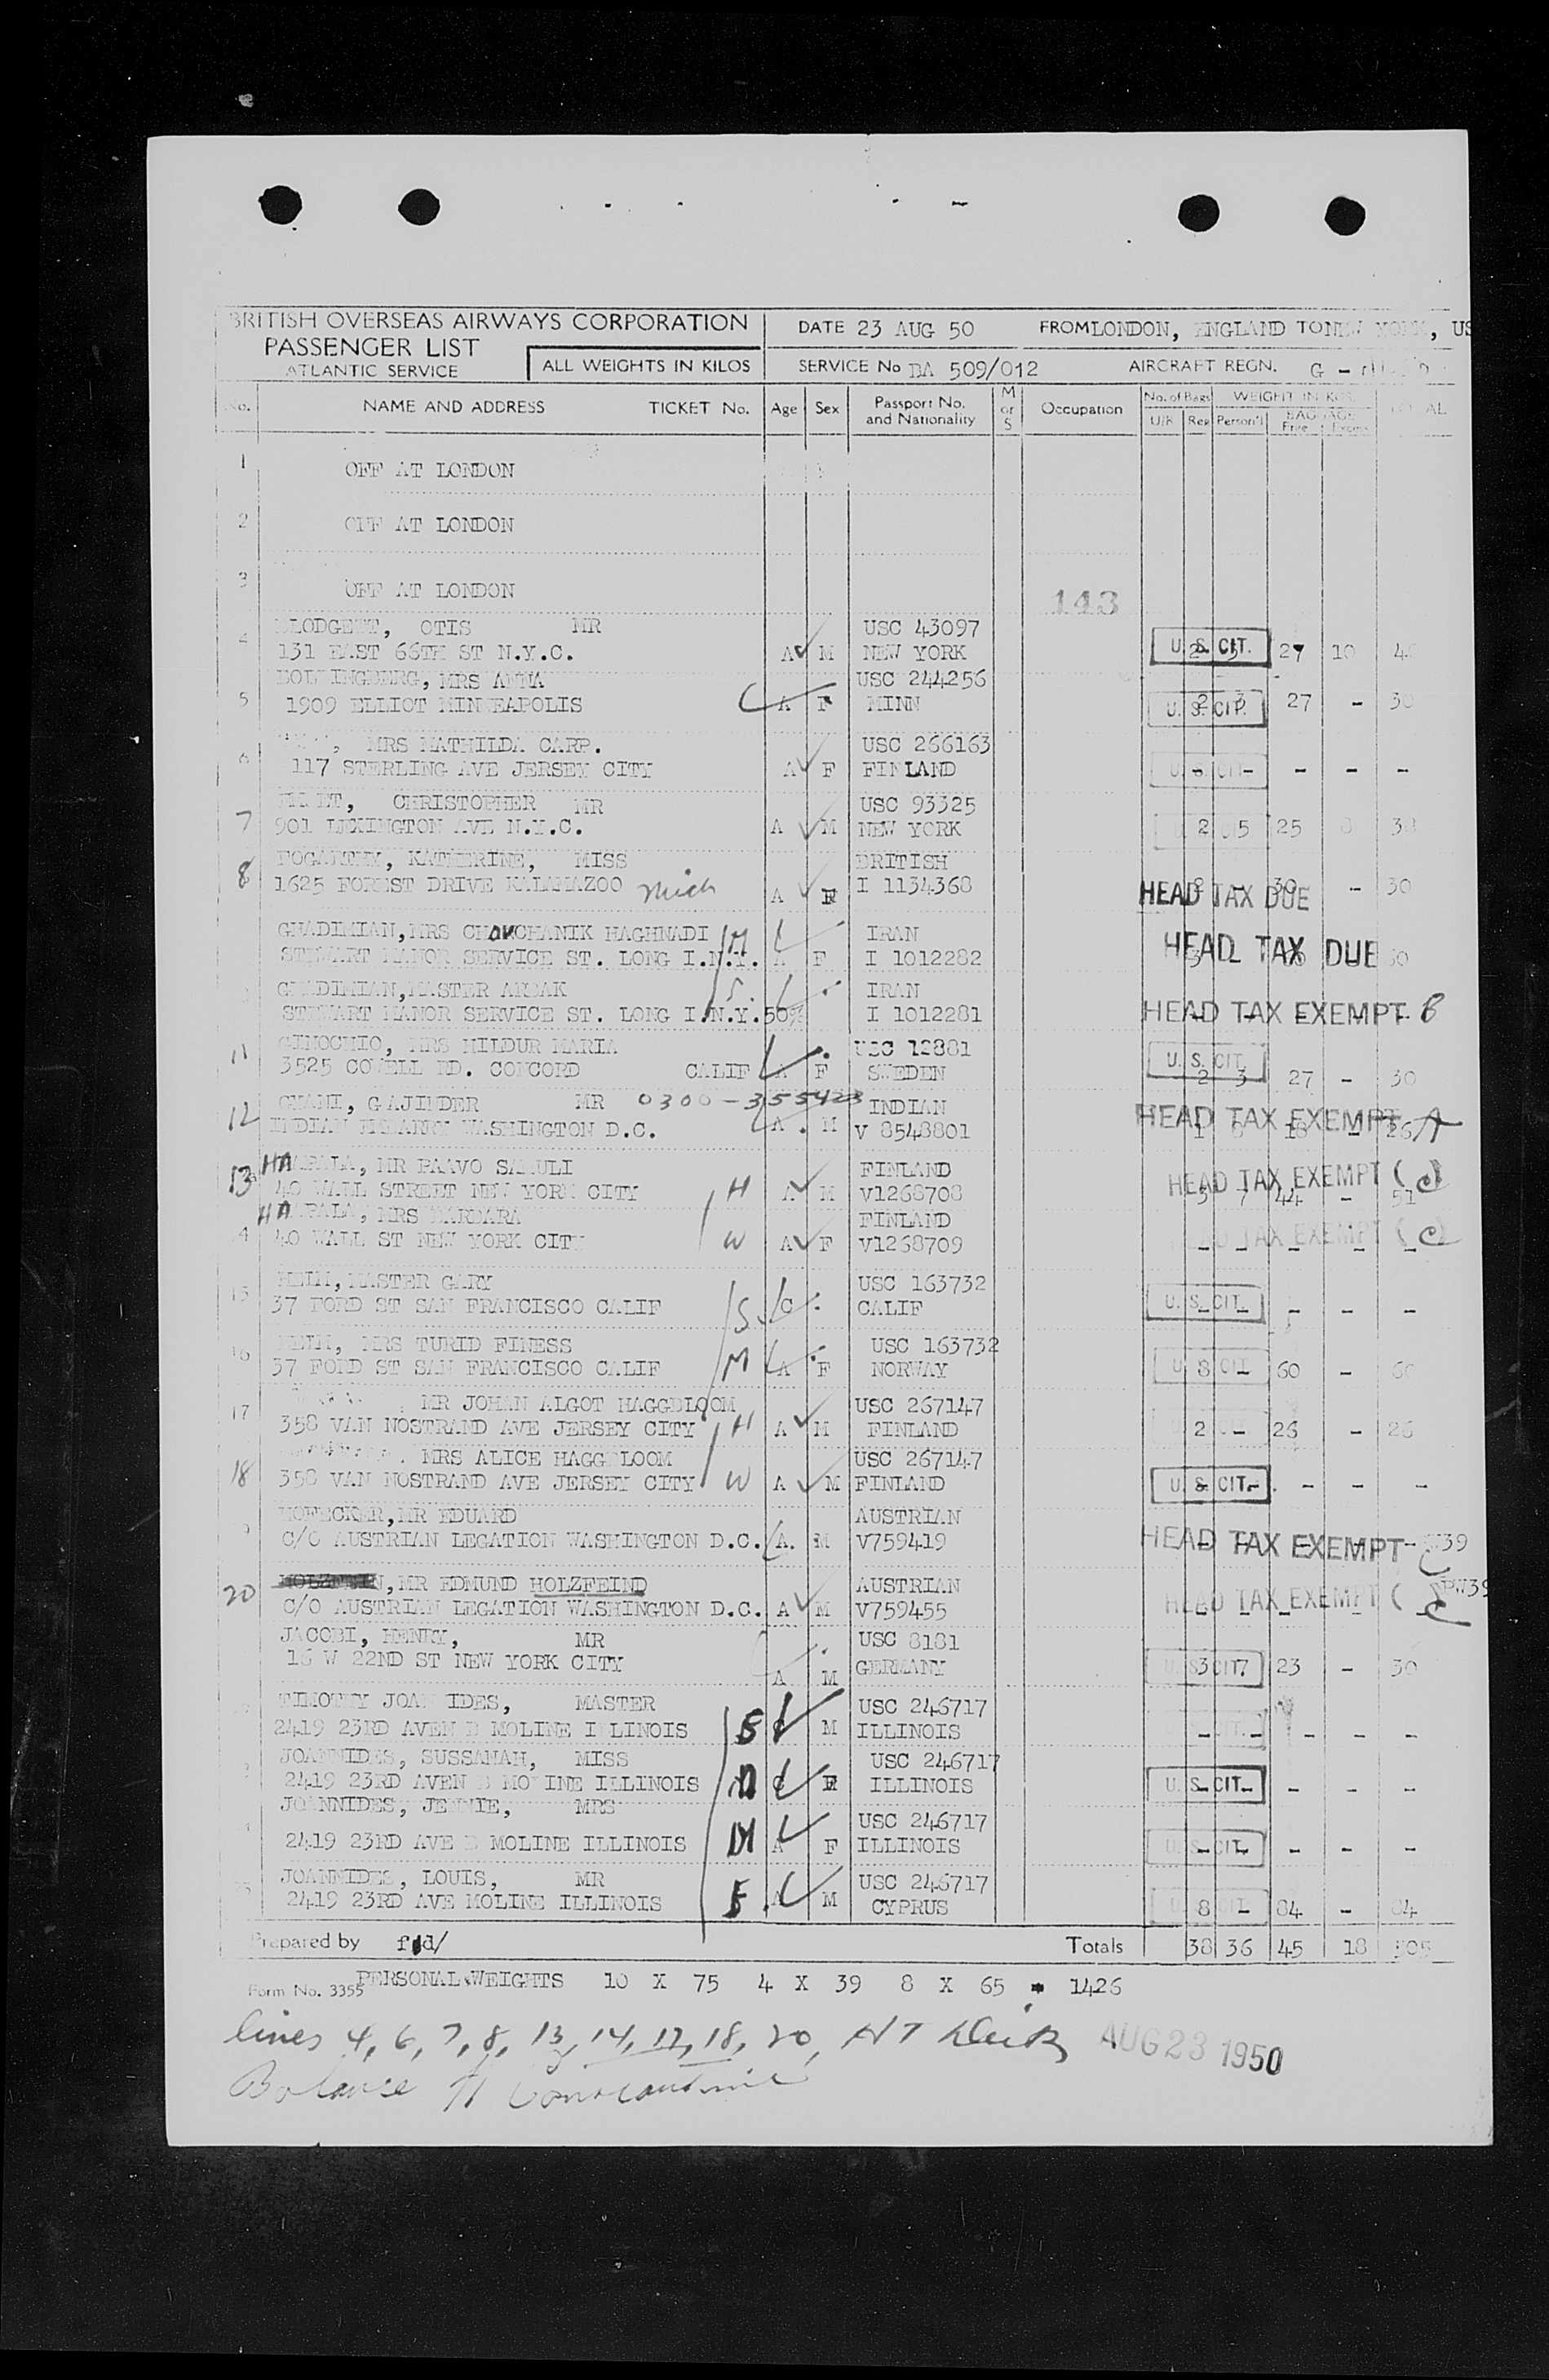 BRITISH OVERSEAS AIRWAYS CORPORATION
PASSENGER LIST
ATLANTIC SERVICE
ALL WEIGHTS IN KILOS
DATE 23 AUG 50 FROM LONDON, ENGLAND TO NEW YORK, US
SERVICE No BA 509/012 AIRCRAFT REGN. G -
No. NAME AND ADDRESS TICKET No. Age Sex Passport No. and Nationality M or S Occupation No. of Bags U/R Reg WEIGHT IN KGS Person'l BAGGAGE Free Excess TOTAL
1 OFF AT LONDON
2 OFF AT LONDON
3 OFF AT LONDON
143
4 BLODGETT, OTIS MR USC 43097
131 EAST 66TH ST N.Y.C. A M NEW YORK U. S. CIT. 2 3 27 10
MRS ANNA USC 244256
5 1909 ELLIOT MINNEAPOLIS A F MINN U. S. CIT. 2 3 27 - 30
6 MRS MATHILDA CARP. USC 266163
117 STERLING AVE JERSEY CITY A F FINLAND U. S. CIT. - - - - -
CHRISTOPHER MR USC 93325
7 901 LEXINGTON AVE N.Y.C. A M NEW YORK 2 5 25
FOGARTHY, KATHERINE, MISS BRITISH
8 1625 FOREST DRIVE KALAMAZOO Mich A F I 1134368 HEAD TAX DUE 30 - 30
GHADIMIAN, MRS HAGHNADI M IRAN
STEWART MANOR SERVICE ST. LONG I.N.Y. A F I 1012282 HEAD TAX DUE
GHADIMIAN, MASTER ARDAK S. IRAN
STEWART MANOR SERVICE ST. LONG I.N.Y. 50% I 1012281 HEAD TAX EXEMPT B
11 GINOCHIO, MRS HILDUR MARIA USC 12881
3525 COWELL RD. CONCORD CALIF A F SWEDEN U. S. CIT. 2 3 27 - 30
GAJINDER MR 0300-355423 INDIAN
12 INDIAN EMBASSY WASHINGTON D.C. A M V 8548801 HEAD TAX EXEMPT A 1 8 18 - 26
13 HAAPALA, MR PAAVO SAMULI FINLAND
40 WALL STREET NEW YORK CITY H A M V1268708 HEAD TAX EXEMPT (C) 5 7 44 - 51
14 HAAPALA, MRS BARBARA FINLAND
40 WALL ST NEW YORK CITY W A F V1268709 HEAD TAX EXEMPT (C)
15 HEIM, MASTER GARY USC 163732
37 FORD ST SAN FRANCISCO CALIF S C CALIF U. S. CIT. - - -
16 HEIM, MRS TURID FINESS USC 163732
37 FORD ST SAN FRANCISCO CALIF M A F NORWAY U. S. CIT. 8 - 60 - 60
17 MR JOHAN ALGOT HAGGBLOOM USC 267147
358 VAN NOSTRAND AVE JERSEY CITY H A M FINLAND 2 - 26 - 26
MRS ALICE HAGGBLOOM USC 267147
18 358 VAN NOSTRAND AVE JERSEY CITY W A M FINLAND U. S. CIT. - - -
HOFECKER, MR EDUARD AUSTRIAN
C/O AUSTRIAN LEGATION WASHINGTON D.C. A. M V759419 HEAD TAX EXEMPT C
20 MR EDMUND HOLZFEIND AUSTRIAN
C/O AUSTRIAN LEGATION WASHINGTON D.C. A M V759455 HEAD TAX EXEMPT C
JACOBI, HENRY, MR USC 8181
16 W 22ND ST NEW YORK CITY A M GERMANY U. S. CIT. 3 7 23 - 30
TIMOTHY JOANNIDES, MASTER USC 246717
2419 23RD AVEN E MOLINE ILLINOIS S C M ILLINOIS - - - - -
JOANNIDES, SUSSANAH, MISS USC 246717
2419 23RD AVEN E MOLINE ILLINOIS C F ILLINOIS U. S. CIT. - - -
JOANNIDES, JENNIE, MRS USC 246717
2419 23RD AVE E MOLINE ILLINOIS M A F ILLINOIS U. S. CIT. - - -
JOANNIDES, LOUIS, MR USC 246717
25 2419 23RD AVE MOLINE ILLINOIS F A M CYPRUS 8 - 84 - 84
Prepared by Totals 38 36 45 18
Form No. 3355 PERSONAL WEIGHTS 10 X 75 4 X 39 8 X 65 = 1426
lines 4, 6, 7, 8, 13, 14, 17, 18, 20, AUG 23 1950
Balance